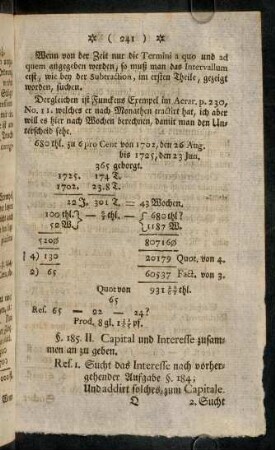 ( 241 )
Wenn von der Zeit nur die Termini a quo und ad
quem angegeben werden, so muß man das Intervallum
erst, wie bey der Subtraction, im ersten Theile, gezeigt
worden, suchen.
Dergleichen ist Funckens Exempel im Aerar. p. 230,
No. 11. welches er nach Monathen tractirt hat, ich aber
will es hier nach Wochen berechnen, damit man den Un-
terscheid sehe.
680 thl. zu 6 pro Cent von 1702, den 26 Aug.
bis 1725, den 23 Jun.
365 geborgt.
1725. 174 T.
1702. 238 T.
12 J. 301 T. = 43 Wochen.
100 thl. — thl. — 680 thl?
52 W. 1187 W.
5200 807160
4) 130 20179 Quot. von 4.
2) 65 60537 Fact. von 3.
Quot von 931 thl.
65
Res. 65 — 22 — 24?
Prod. 8 gl. 1 pf.
§. 185. II. Capital und Interesse zusam-
men an zu geben.
Res. 1. Sucht das Interesse nach vorher-
gehender Aufgabe §. 184;
Und addirt solches, zum Capitale.
Q 2. Sucht